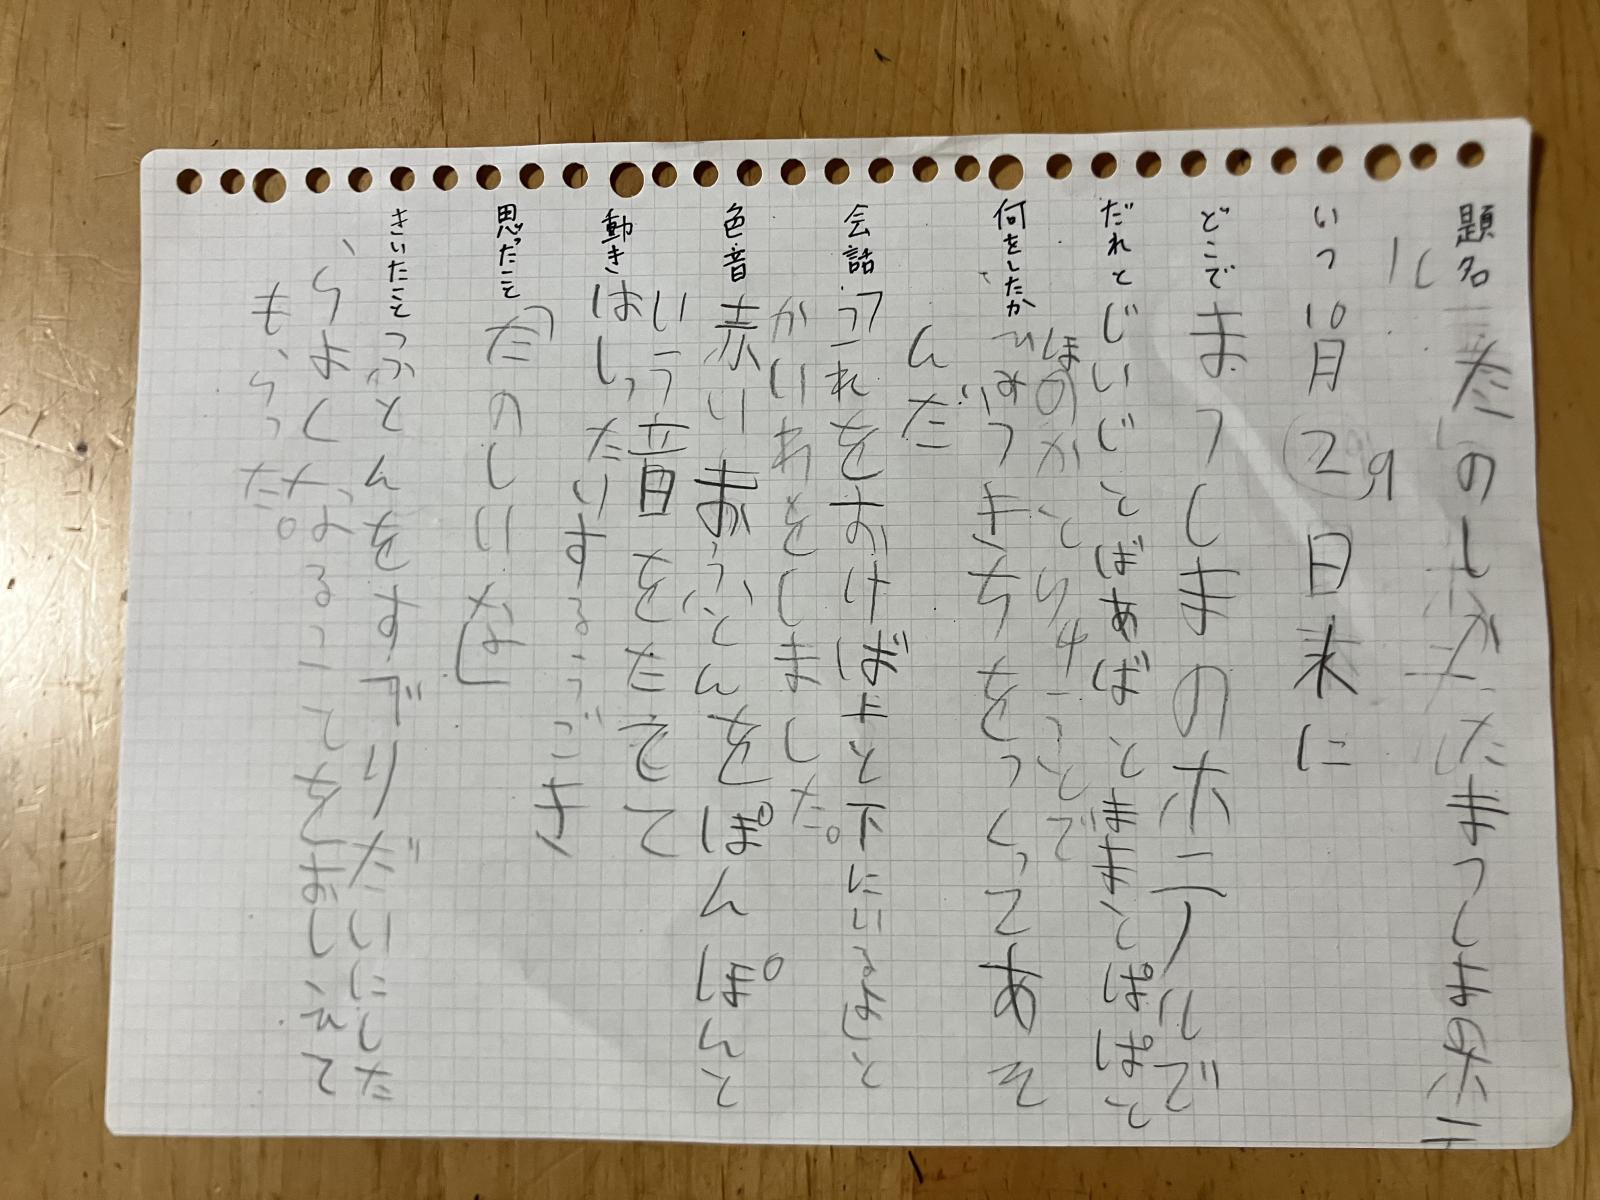 題名 たのしかったまつしまのホテ
ル
いつ 10月29日末に
どこで まつしまのホテルで
だれと じいじとばあばとままとぱぱと
ほのかとら4ことで
何をしたか ひみつきちをつくってあそ
んだ
会話 「これをおけばもと下にいるよ」と
かいわをしました。
色音 赤いまがふとんをぽんぽんと
いう音をたてて
動き はしったりするうごき
思ったこと 「たのしいな」
きいたこと ふとんをすべりだいにした
らよくなるってをおしえて
もらった。